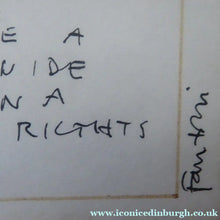 E A
NIDE
N A
RIGHTS
www.iconicedinburgh.co.uk